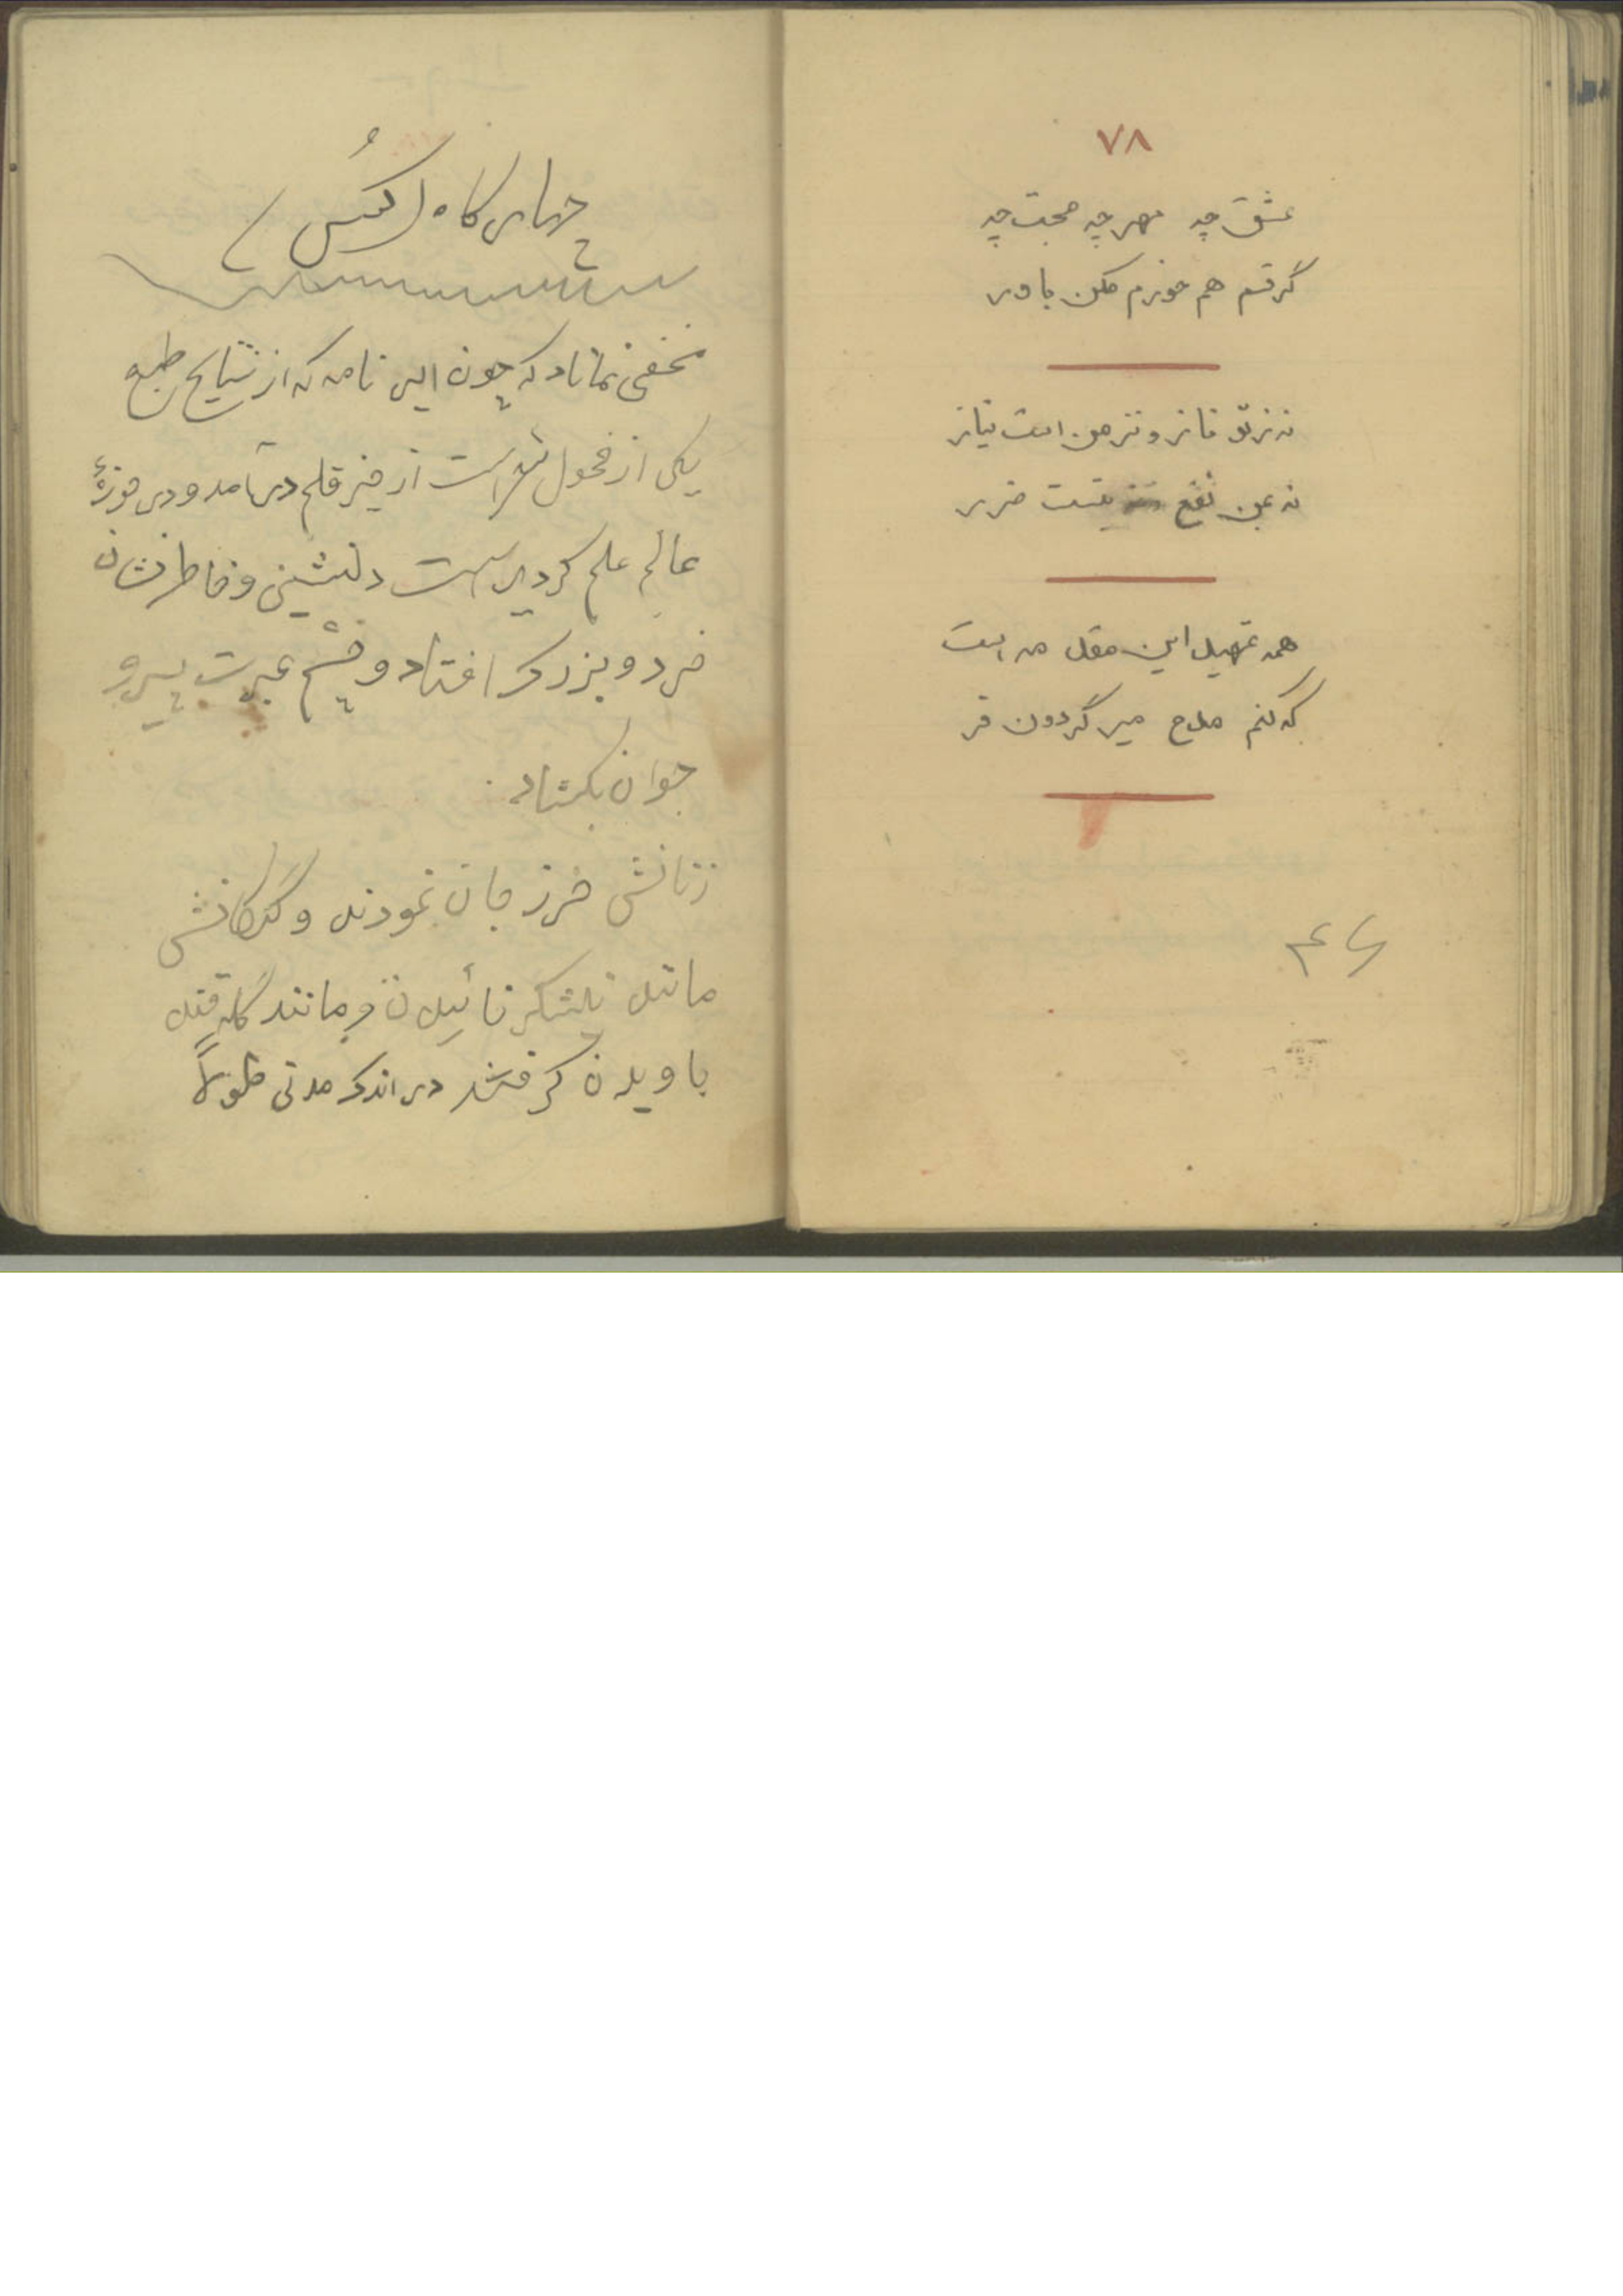 ۷۸
عشق چه مهر چه محبت چه
گر قسم هم خورم مکن باور
نه ز تو ناز و نز من است نیاز
نه بمن نفع نیستت ضرر
همه تمهید این مقدمه است
که کنم مدح میر گردون فر
مخفی نماناد که چون این نامه که از نتایج طبع
یکی از فحول شعراست از حیز قلم درآمد و در حوزهٔ
عالم علم گردیداست دلنشین و خاطرنشان
خرد و بزرگ افتاد و چشم عبرت پیر و
جوان بگشاد
زنانش حرز جان نمودند و
مانند نیشکر خائیدن و مانند کله قند
باویدن گرفتند در اندک مدتی